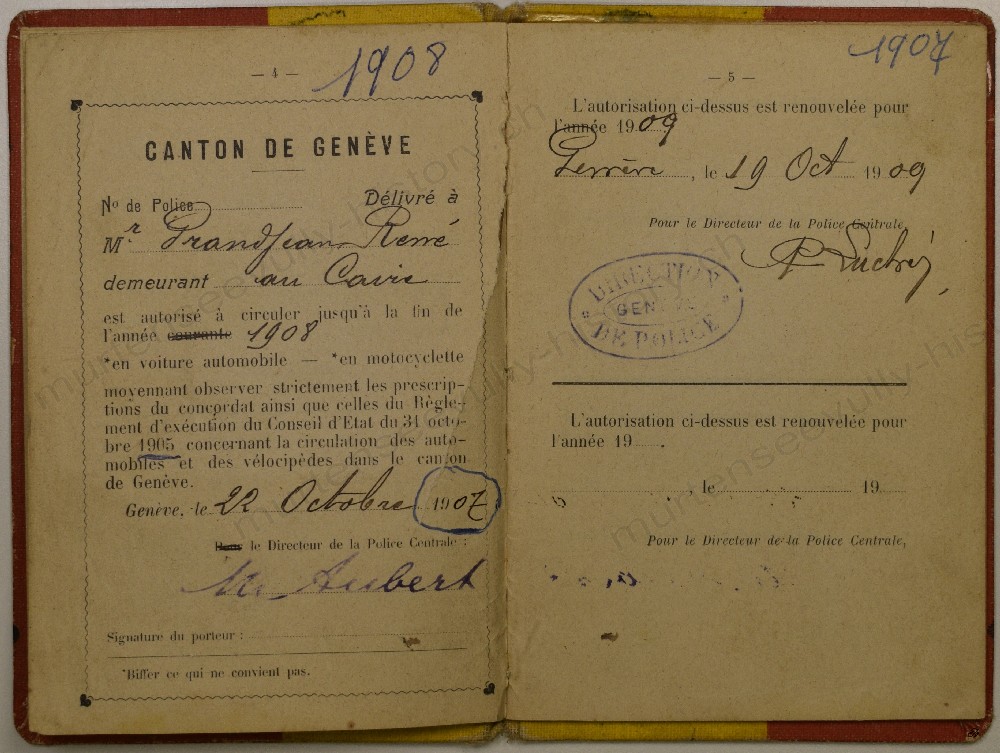 — 4 —
1908
CANTON DE GENÈVE
No de Police Délivré à
Mr Grandjean René
demeurant au
est autorisé à circuler jusqu'à la fin de
l'année courante 1908
*en voiture automobile — *en motocyclette
moyennant observer strictement les prescrip-
tions du concordat ainsi que celles du Règle-
ment d'exécution du Conseil d'Etat du 31 octo-
bre 1905 concernant la circulation des auto-
mobiles et des vélocipèdes dans le canton
de Genève.
Genève, le 22 Octobre 1907
le Directeur de la Police Centrale :
Aubert
Signature du porteur :
*Biffer ce qui ne convient pas.
1907
— 5 —
L'autorisation ci-dessus est renouvelée pour
l'année 1909
, le 19 Oct 1909
Pour le Directeur de la Police Centrale,
DIRECTION
GENÈVE
DE POLICE
L'autorisation ci-dessus est renouvelée pour
l'année 19 .
, le 19
Pour le Directeur de la Police Centrale,
murtenseevully-history.ch